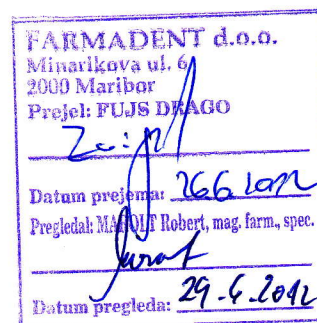 FARMADENT d.o.o.
Minarikova ul. 6
2000 Maribor
Prejel: FUJS DRAGO
Datum prejema: 26.6.2012
Pregledal: MAROLT Robert, mag. farm., spec.
Datum pregleda: 29.6.2012